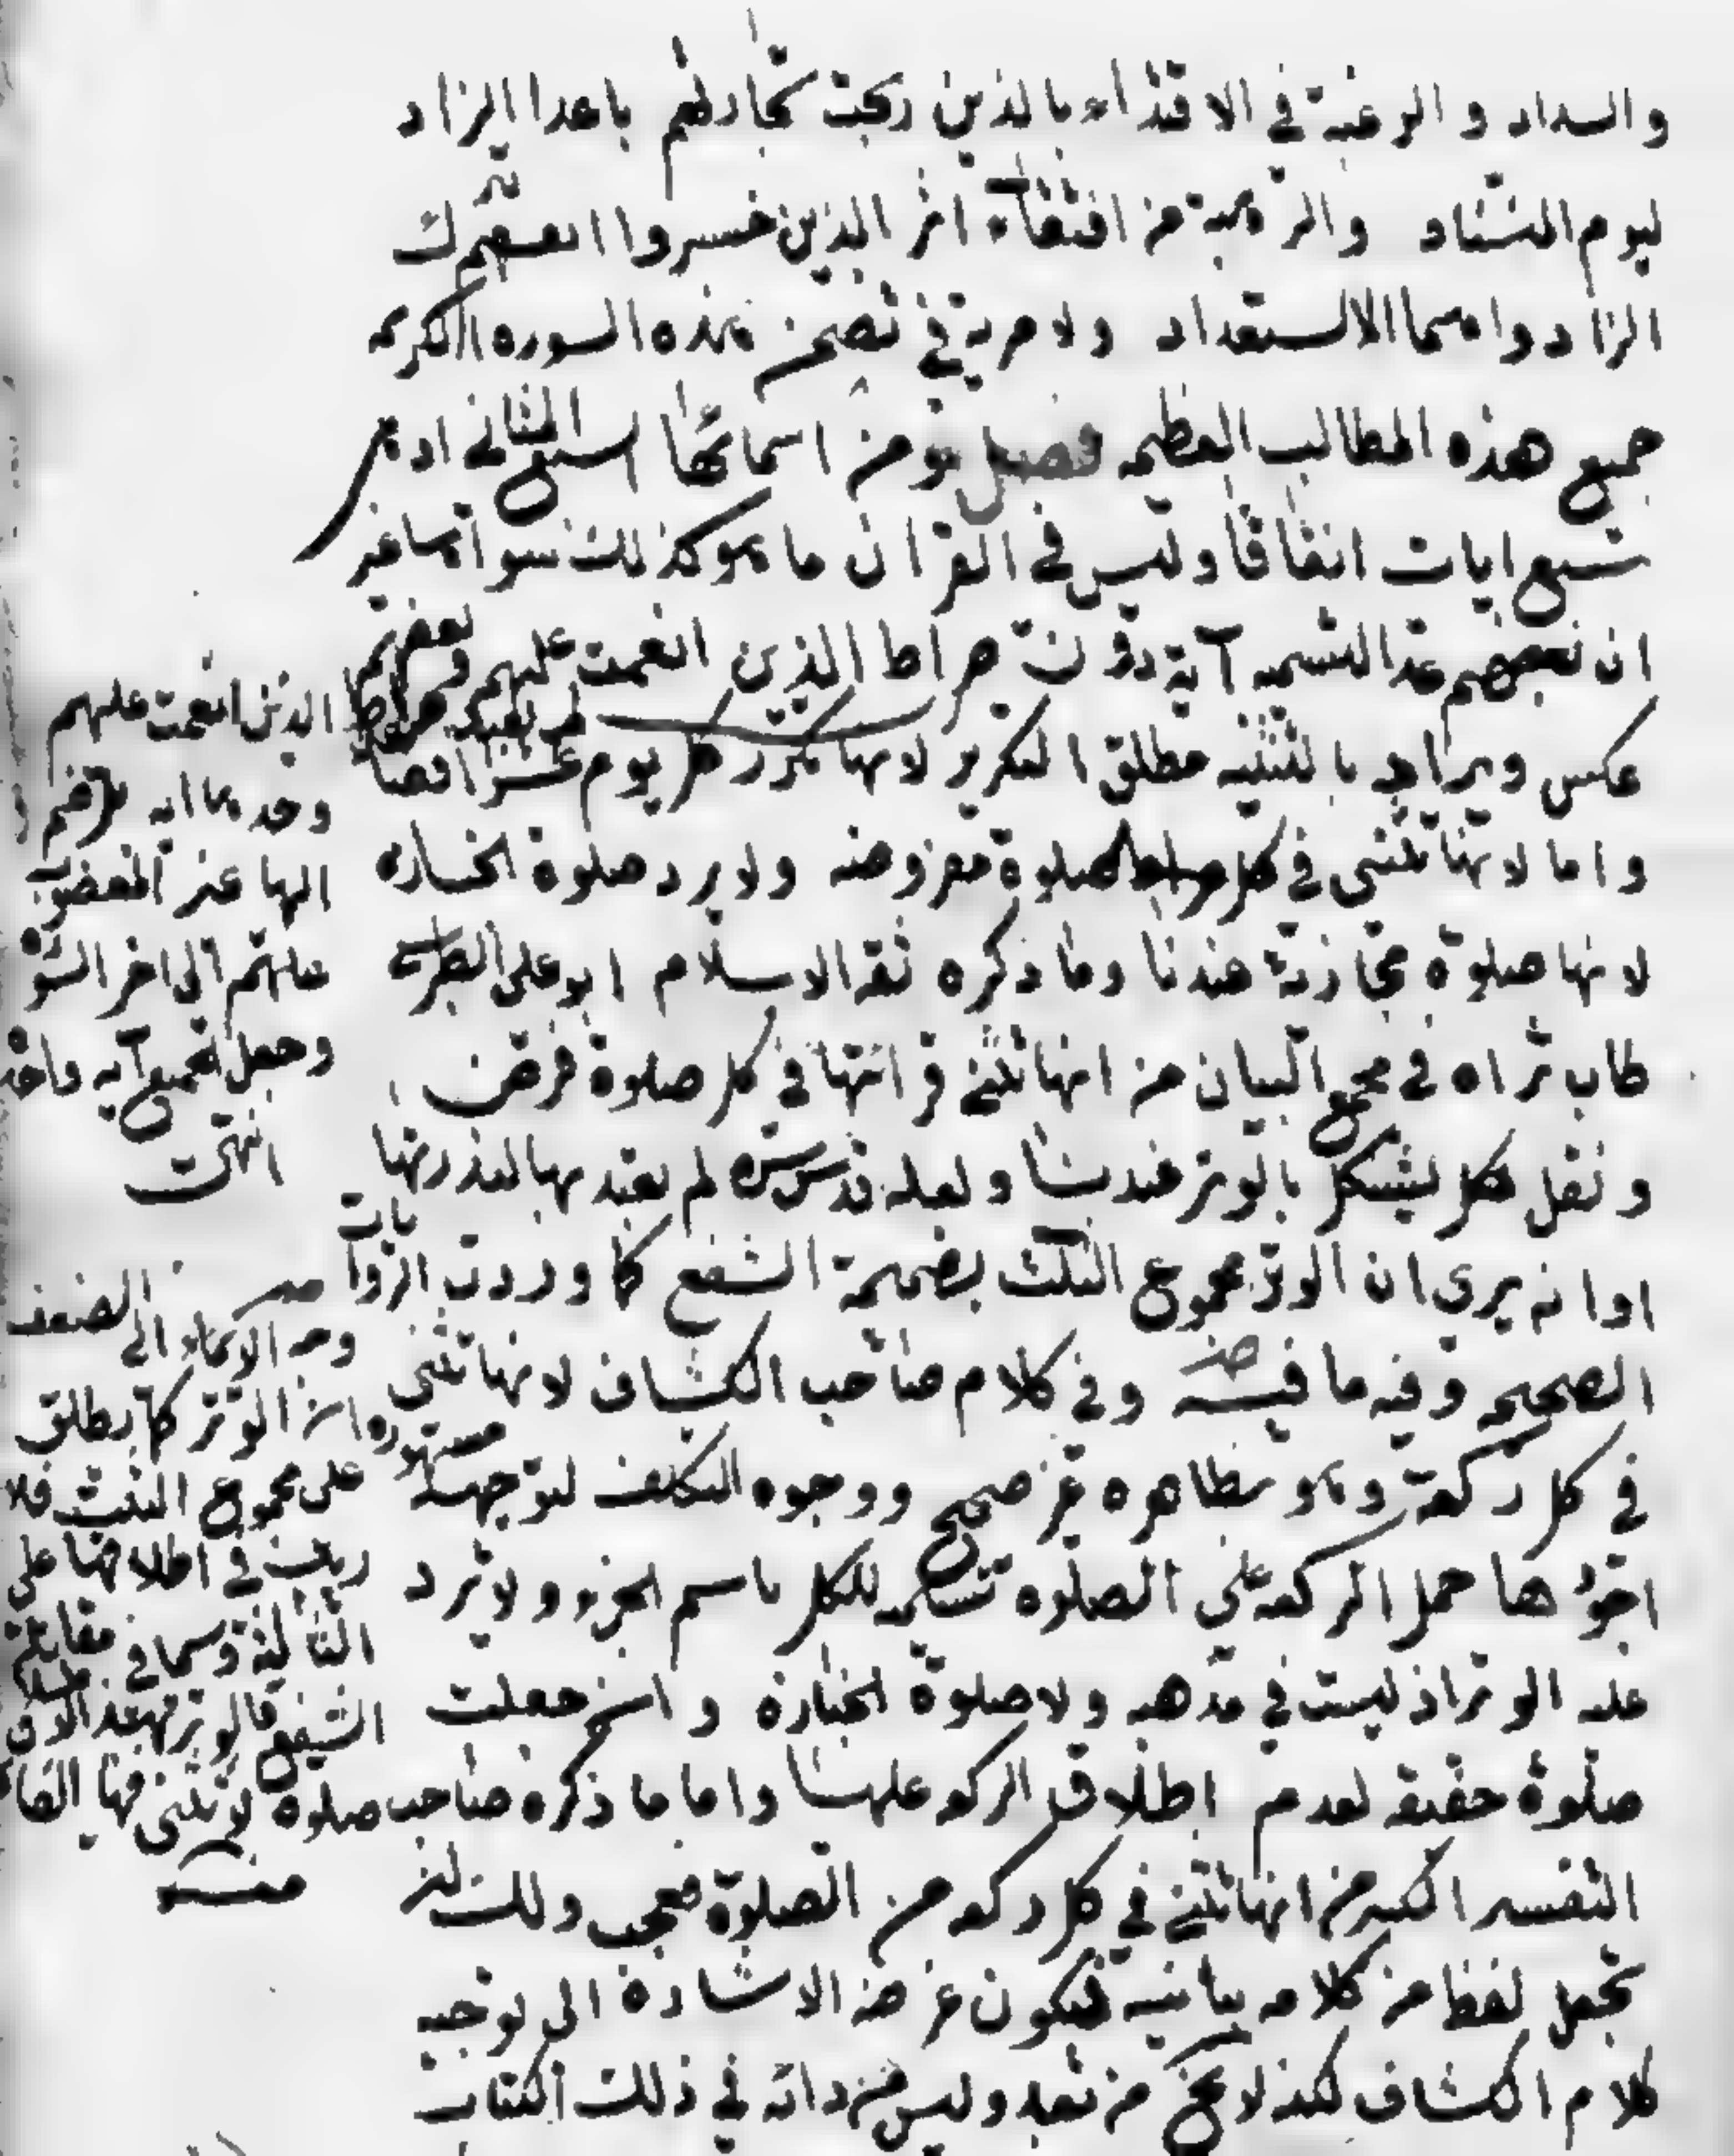 والسداد والرغبة في الاقتداء بالذين ربحت تجارتهم باعداد الزاد
ليوم التناد والرهبة من اقتفاء اثر الذين خسروا انفسهم بترك
الزاد واهمال الاستعداد ولا مرية في تضمن هذه السورة الكريمة
جميع هذه المطالب العظيمة فصل ومن اسمائها السبع المثاني اذ هي
سبع ايات اتفاقا وليس في القران ما هو كذلك سواها غير
ان بعضهم عد التسمية آية دون صراط الذين انعمت عليهم وبعضهم
عكس ويراد بالتثنية مطلق التكرير لانها تكرر كل يوم عشرا فصاعدا
واما لانها تثنى في كل صلوة مفروضة ولا يرد صلوة الجنازة
لانها صلوة مجازية عندنا وما ذكره ثقة الاسلام ابو علي الطبرسي
طاب ثراه في مجمع البيان من انها تثنى قرائتها في كل صلوة فرض
ونفل مشكل بالوتر عندنا ولعله قدس سره لم يعتد بها لندرتها
او انه يرى ان الوتر مجموع الثلث بضميمة الشفع كما وردت الروايات
الصحيحة وفيه ما فيه وفي كلام صاحب الكشاف لانها تثنى
في كل ركعة وهو بظاهره غير صحيح ووجوه التكلف لتوجيهه مشهورة
اجودها حمل الركعة على الصلوة تسمية للكل باسم الجزء ولا ترد
عليه الوتر اذ ليست في مذهبه ولا صلوة الجنازة وان جعلت
صلوة حقيقة لعدم اطلاق الركوع عليها واما ما ذكره صاحب
التفسير الكبير من انها تثنى في كل ركعة من الصلوة فعجيب ولك ان
تجعل لفظة من كلامه بيانية فيكون غرضه الاشارة الى توجيه
كلام الكشاف لكنه لا يخ من بعد وليس من دابه في ذلك الكتاب
لم يعد صراط الذين انعمت عليهم
وحدها اية بل ضم
اليها غير المغضوب
عليهم الى اخر السورة
وجعل الجميع آية واحدة
انتهى
وجه الايماء الى الضعف
ان الوتر كما يطلق
على مجموع الثلث فلا
ريب في اطلاقها على
الثالثة وسيما في مقابلة
الشفع فالوتر بهذا الاطلاق
صلوة لا تثنى فيها الفاتحة
منه